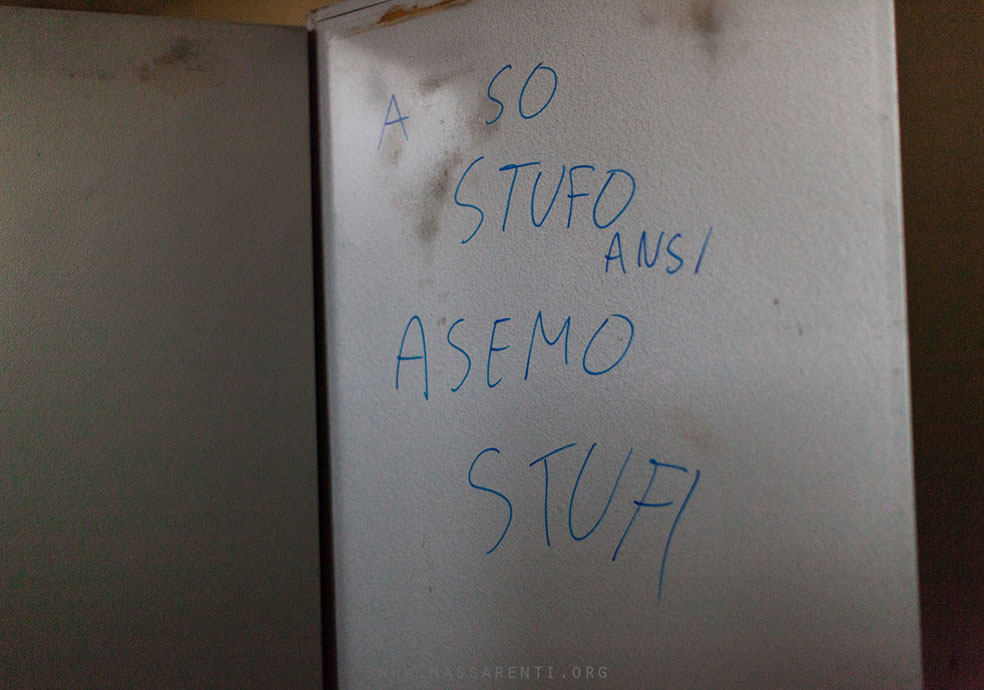 A SO
STUFO
ANSI
ASEMO
STUFI
WWW.MASSARENTI.ORG